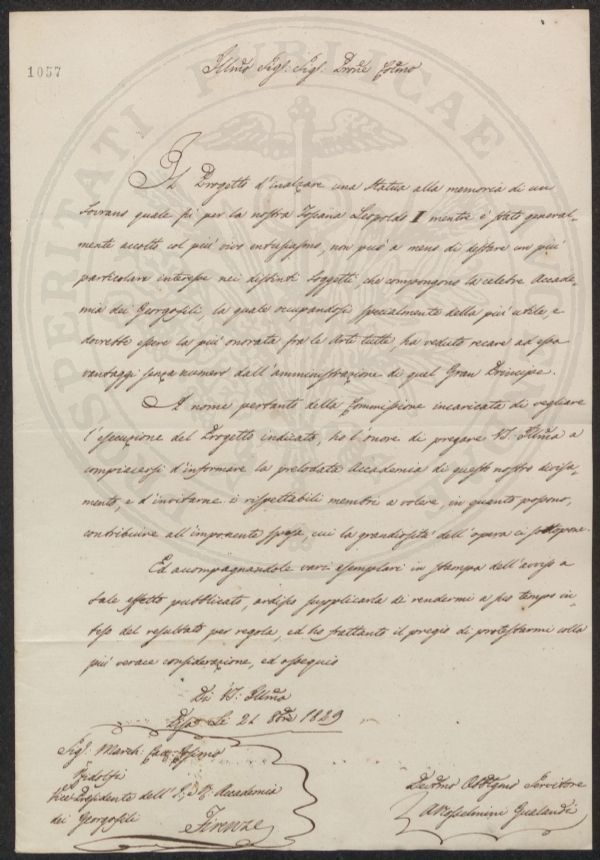 1057
Illmo Sigr. Sigr. Prone Colmo
Il Progetto d'inalzare una Statua alla memoria di un
Sovrano quale fù per la nostra Toscana Leopoldo I mentre è stato general-
mente accolto col più vivo entusiasmo, non può a meno di destare un più
particolare interesse nei distinti Soggetti, che compongono la celebre Accade-
mia dei Georgofili, la quale occupandosi specialmente della più utile, e
dovrebbe essere la più onorata fra le Arti tutte, ha veduto recare ad essa
vantaggi senza numero dall'amministrazione di quel Gran Principe.
A nome pertanto della Commissione incaricata di vegliare
l'esecuzione del Progetto indicato, ho l'onore di pregare V. S. Illma a
compiacersi d'informare la prelodata Accademia di questo nostro divisa-
mento, e d'invitarne i rispettabili membri a volere, in quanto possono,
contribuire all'imponente spesa, cui la grandiosità dell'opera ci sottopone.
Ed accompagnandole varj esemplari in stampa dell'avviso a
tale effetto pubblicato, ardisco supplicarla di rendermi a suo tempo in-
teso del resultato per regola, ed ho frattanto il pregio di protestarmi colla
più verace considerazione, ed ossequio
Di V. S. Illma
Pisa Li 21 8bre 1829
Sigr. March. Cav. Cosimo
Ridolfi
Vice Presidente dell' I. e R. Accademia
dei Georgofili
Firenze
Devmo Obbligmo Servitore
A Ruschi Gualandi
PROSPERITATI PUBLICAE AUGENDAE